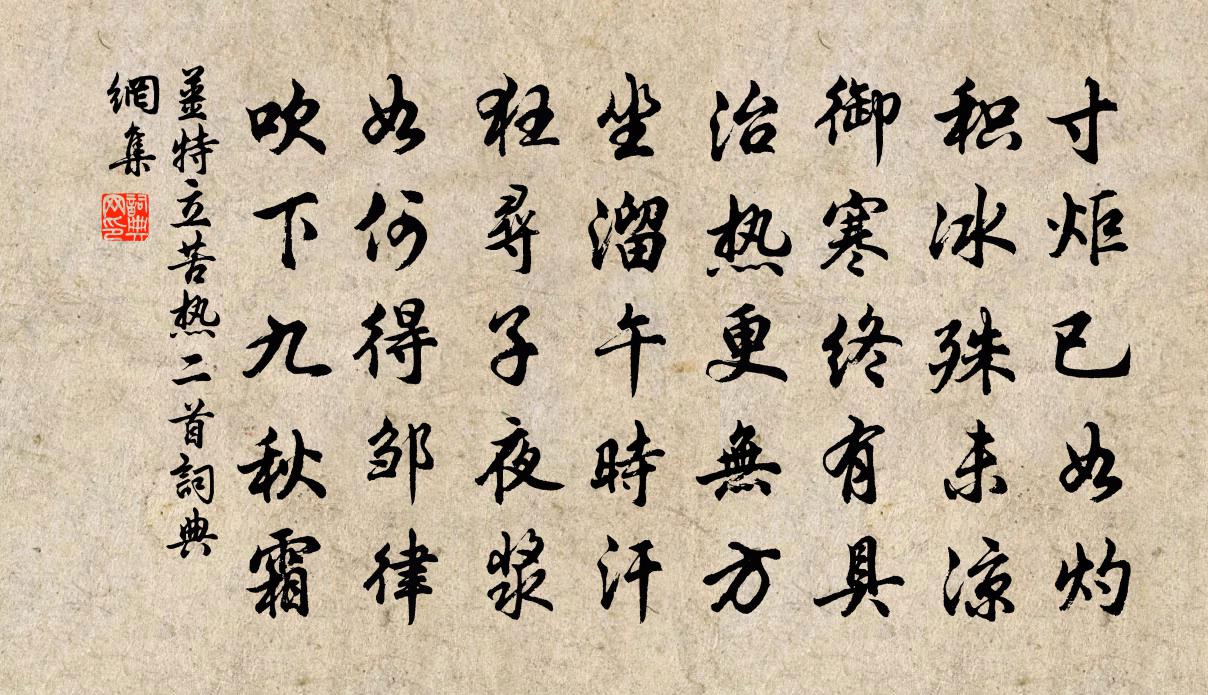 寸炬已如灼
积冰殊未凉
御寒终有具
治热更無方
坐溜午時汗
狂尋子夜漿
如何得邹律
吹下九秋霜
姜特立苦热二首詞典
網集
詞典
网印